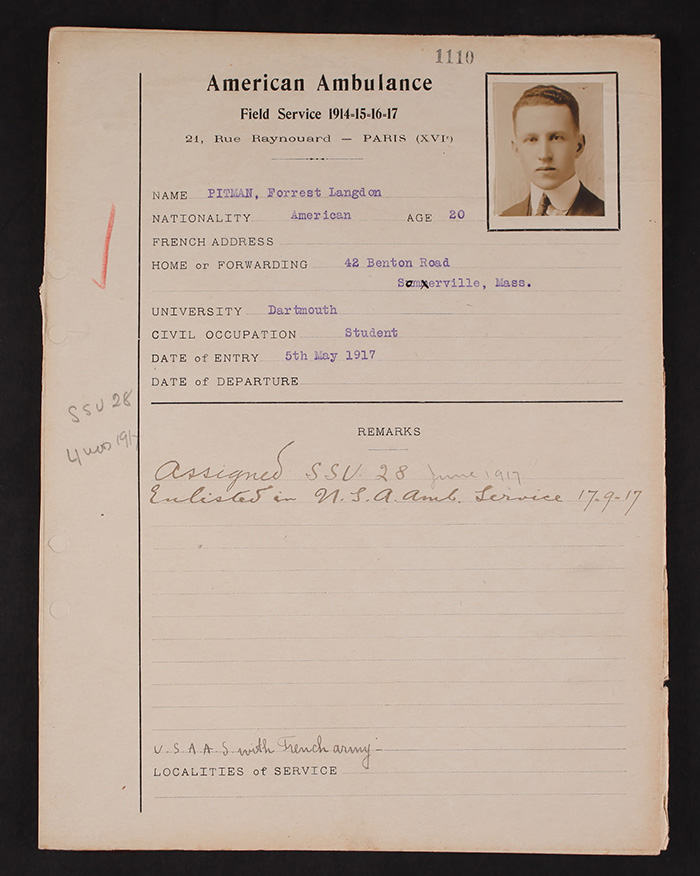 1110
American Ambulance
Field Service 1914-15-16-17
21, Rue Raynouard — PARIS (XVIe)
NAME PITMAN, Forrest Langdon
NATIONALITY American AGE 20
FRENCH ADDRESS
HOME or FORWARDING 42 Benton Road
Somerville, Mass.
UNIVERSITY Dartmouth
CIVIL OCCUPATION Student
DATE of ENTRY 5th May 1917
DATE of DEPARTURE
SSU 28
4 mos 1917
REMARKS
Assigned S.S.U. 28 June 1917
Enlisted in U.S.A. Amb. Service 17-9-17
U.S.A.A.S. with French army -
LOCALITIES of SERVICE